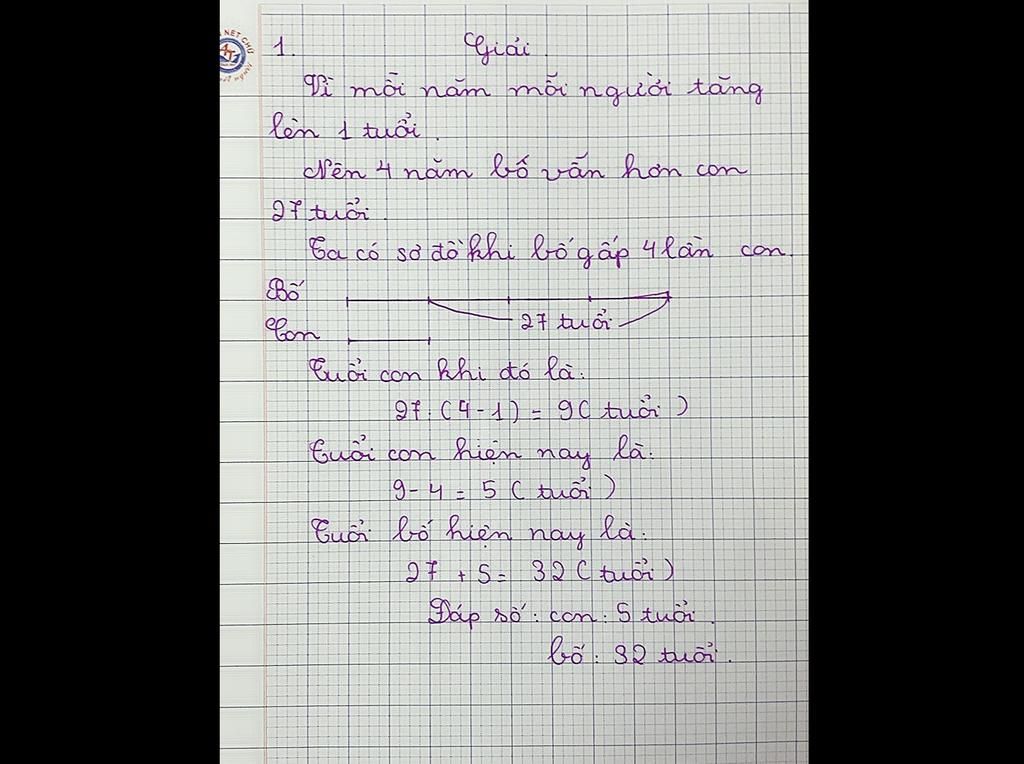 NÉT CHỮ
1. Giải.
Vì mỗi năm mỗi người tăng
lên 1 tuổi.
Nên 4 năm bố vẫn hơn con
27 tuổi.
Ta có sơ đồ khi bố gấp 4 lần con.
Bố
27 tuổi
Con
Tuổi con khi đó là:
27 : (4 - 1) = 9 ( tuổi )
Tuổi con hiện nay là:
9 - 4 = 5 ( tuổi )
Tuổi bố hiện nay là:
27 + 5 = 32 ( tuổi )
Đáp số : con : 5 tuổi.
bố : 32 tuổi.